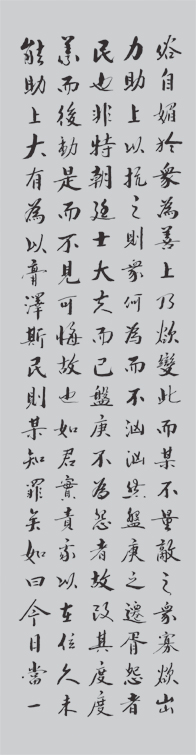 俗自媚於衆為善上乃欲變此而某不量敵之衆寡欲出
力助上以抗之則衆何為而不洶洶然盤庚之遷胥怨者
民也非特朝廷士大夫而已盤庚不為怨者故改其度度
義而後動是而不見可悔故也如君實責我以在位久未
能助上大有為以膏澤斯民則某知罪矣如曰今日當一